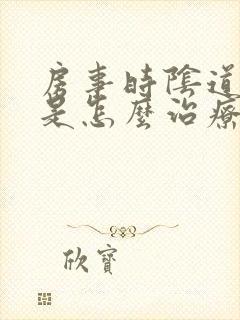 房事時陰道
是怎麼治療
欣寶